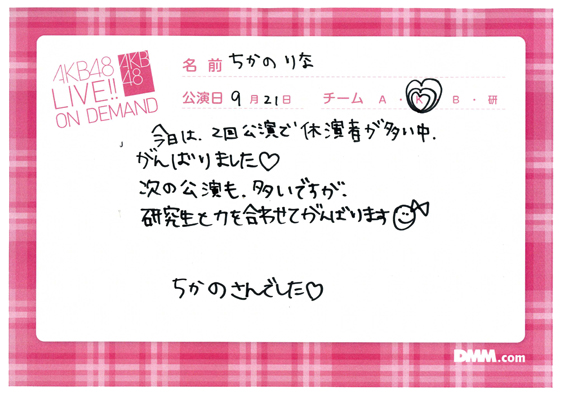 AKB48
LIVE!!
ON DEMAND
AKB
48
名前 ちかの りな
公演日 9月21日 チーム A・K・B・研
今日は、2回公演で休演者が多い中、
がんばりました♡
次の公演も、多いですが、
研究生と力を合わせてがんばります
ちかのさんでした♡
DMM.com